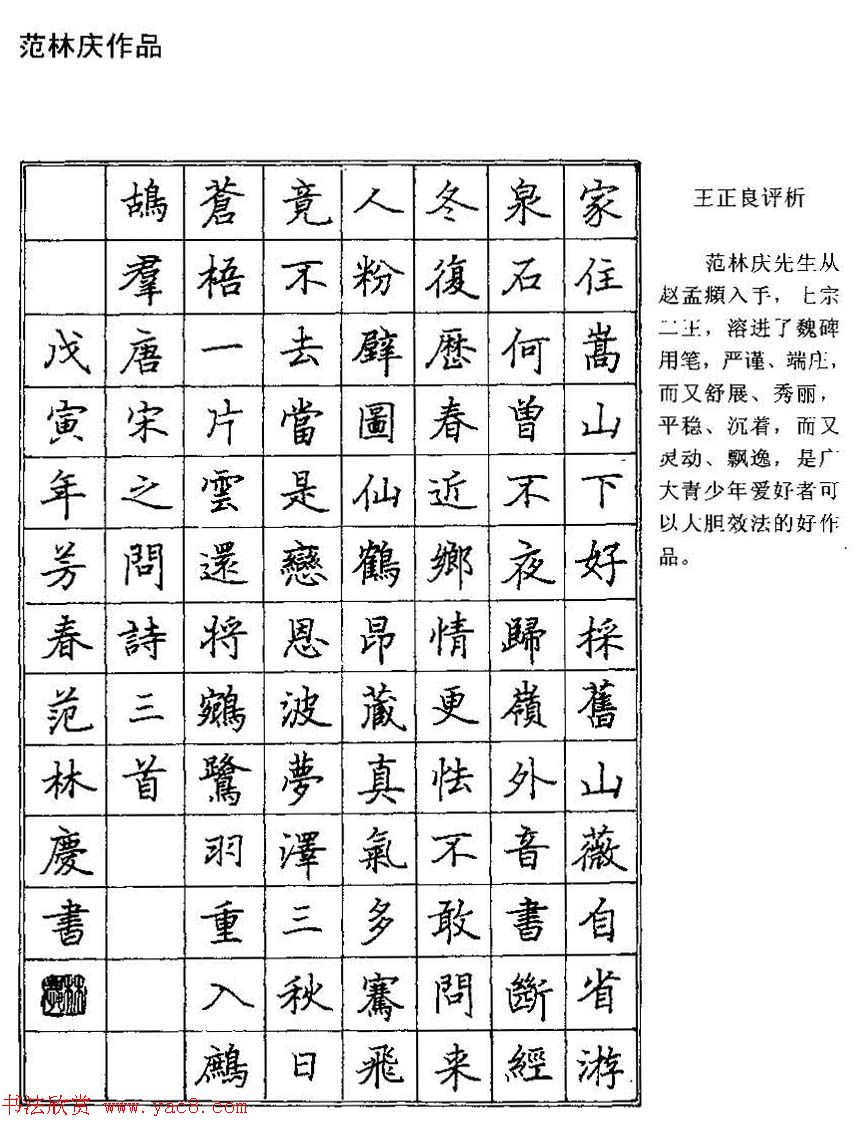 范林庆作品
家住嵩山下好採舊山薇自省游
泉石何曾不夜歸嶺外音書斷經
冬復歷春近鄉情更怯不敢問来
人粉壁圖仙鶴昂藏真氣多騫飛
竟不去當是戀恩波夢澤三秋日
蒼梧一片雲還将鵷鷺羽重入鷓
鴣羣唐宋之問詩三首
戊寅年芳春范林慶書
王正良评析
范林庆先生从
赵孟頫入手，上宗
二王，溶进了魏碑
用笔，严谨、端庄，
而又舒展、秀丽，
平稳、沉着，而又
灵动、飘逸，是广
大青少年爱好者可
以大胆效法的好作
品。
书法欣赏 www.yac8.com